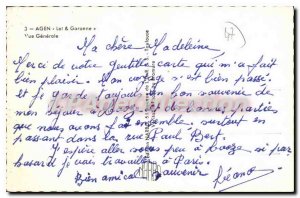 3 - AGEN « Lot & Garonne »
Vue Générale
47
Ma chère Madeleine
Merci de votre gentille carte qui m'a fait
bien plaisir. Mon voyage s'est bien passé
et je garde toujours un bon souvenir de
mon séjour à et de bonnes parties
que nous avons fait ensemble, surtout en
passant dans la rue Paul Bert.
J'espère aller vous voir peu à si par
hasard je vais travailler à Paris.
Bien amical souvenir